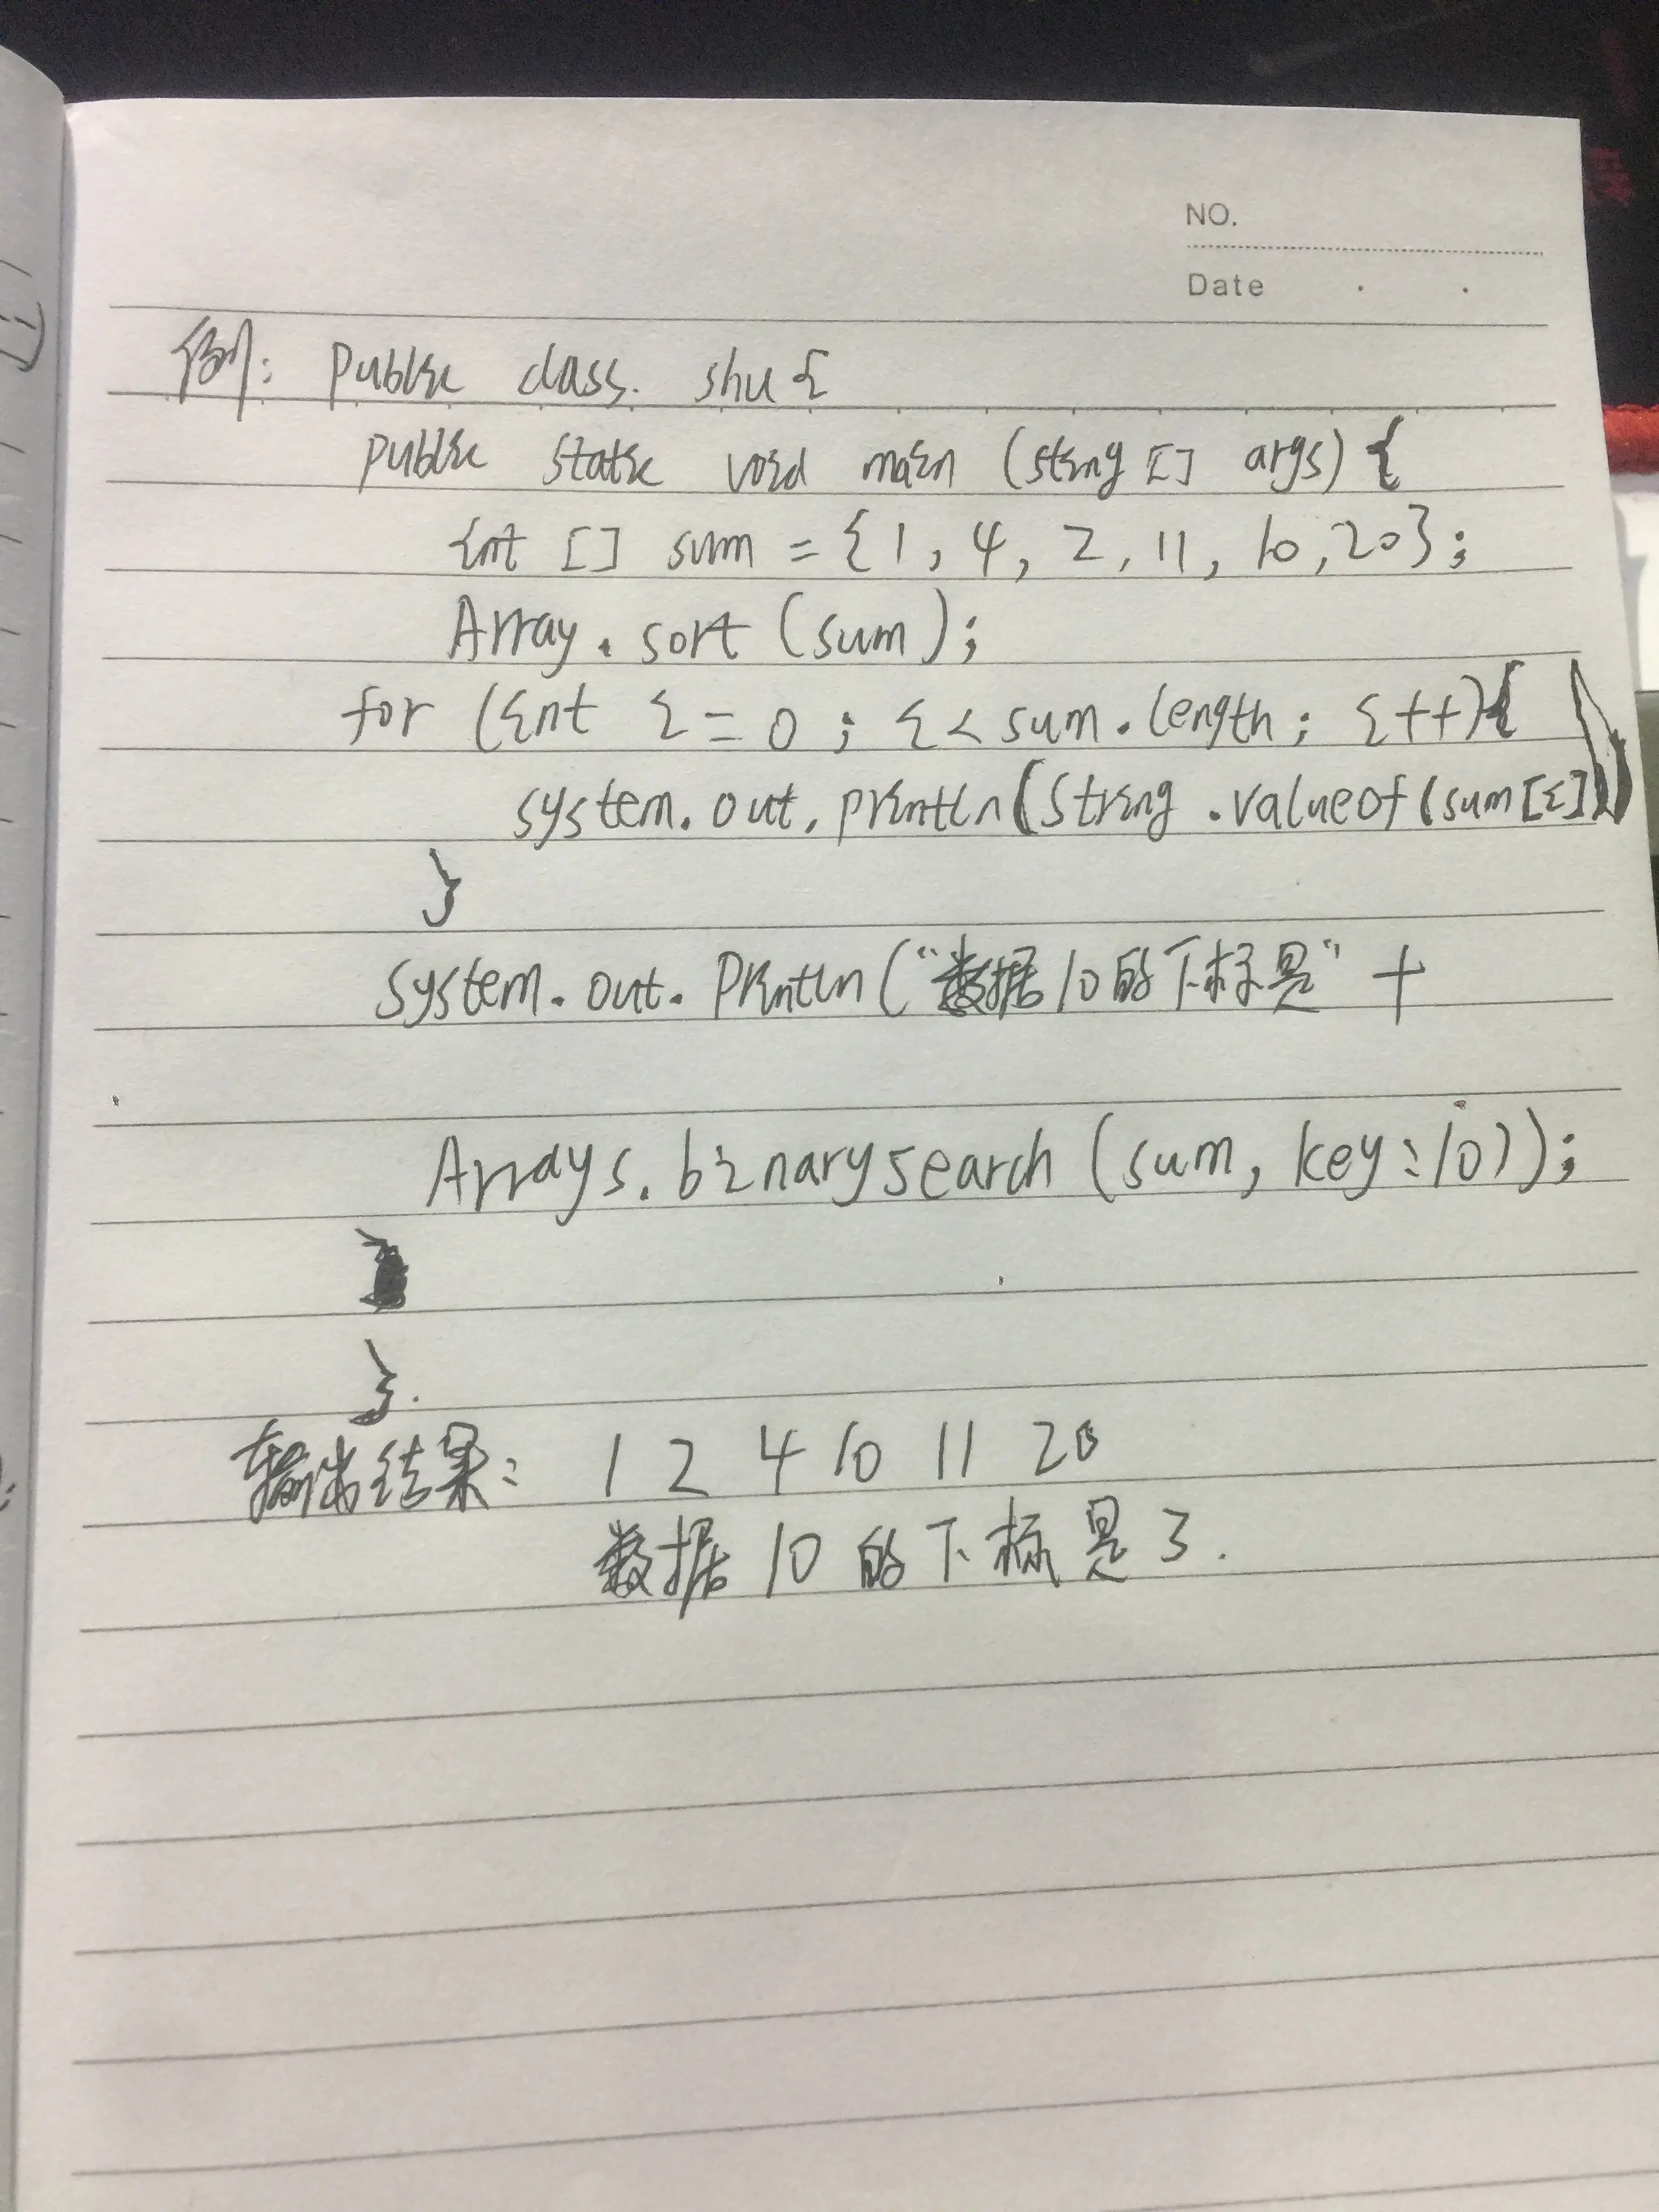 NO.
Date . .
例: public class. shu {
public static void main (string [] args) {
int [] sum = {1, 4, 2, 11, 10, 20};
Array. sort (sum);
for (int i = 0; i < sum. length; i++){
system. out. println (String .valueof (sum[i]))
}
system. out. Println ("数据10的下标是" +
Arrays. binarysearch (sum, key:10));
}.
输出结果: 1 2 4 10 11 20
数据 10 的下标是 3.